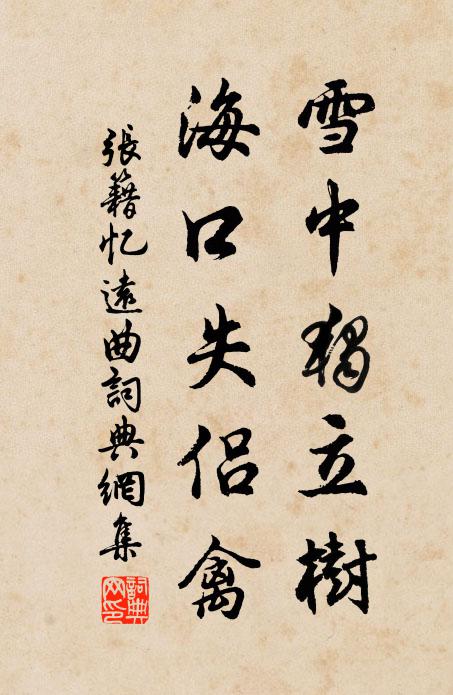 雪中獨立樹
海口失侶禽
張籍忆遠曲詞典網集
詞典網印